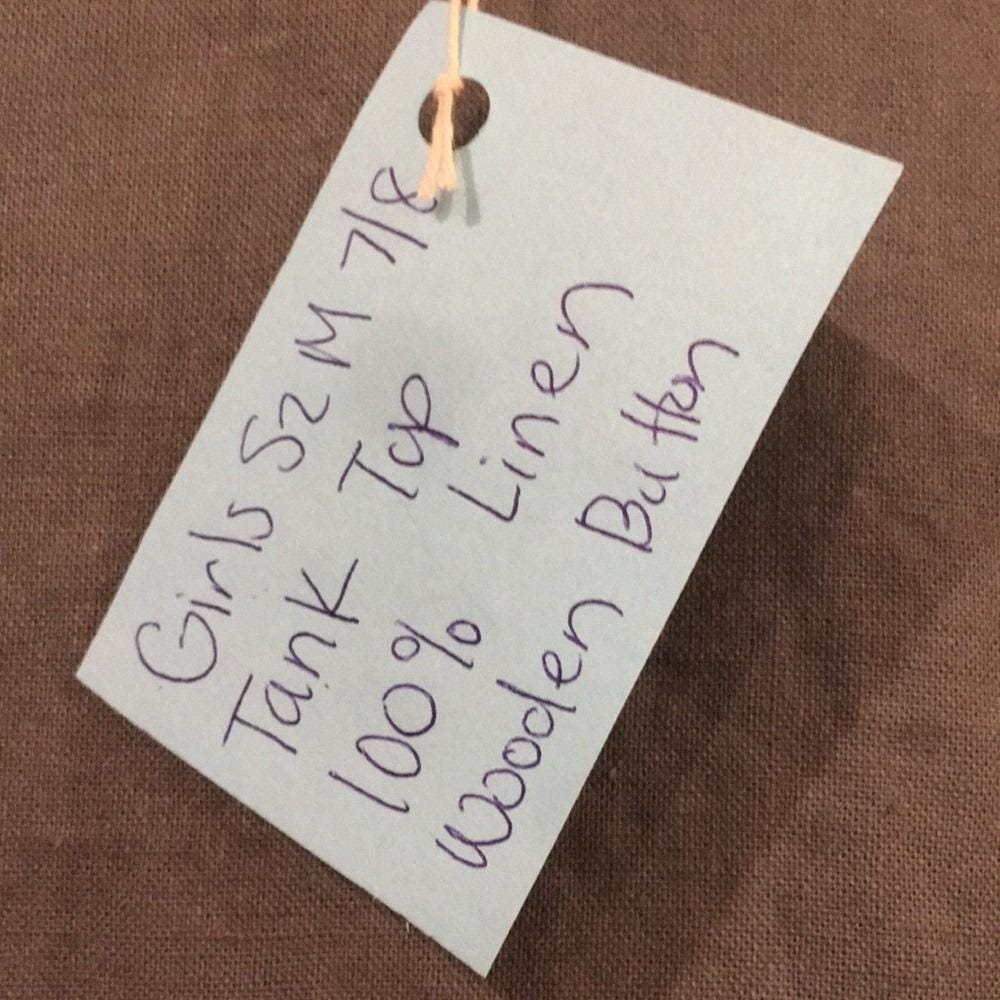 Girls Sz M 7/8
Tank Top
100% Linen
Wooden Button